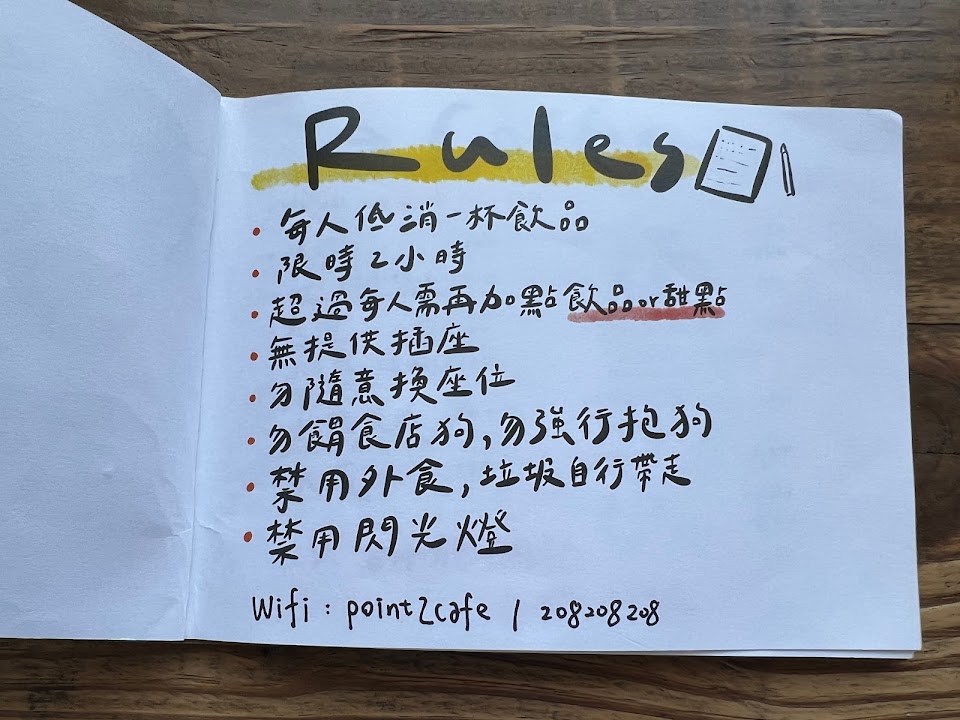 Rules
• 每人低消一杯飲品
• 限時2小時
• 超過每人需再加點飲品or甜點
• 無提供插座
• 勿隨意換座位
• 勿餵食店狗,勿強行抱狗
• 禁用外食,垃圾自行帶走
• 禁用閃光燈
Wifi : point2cafe / 208208208